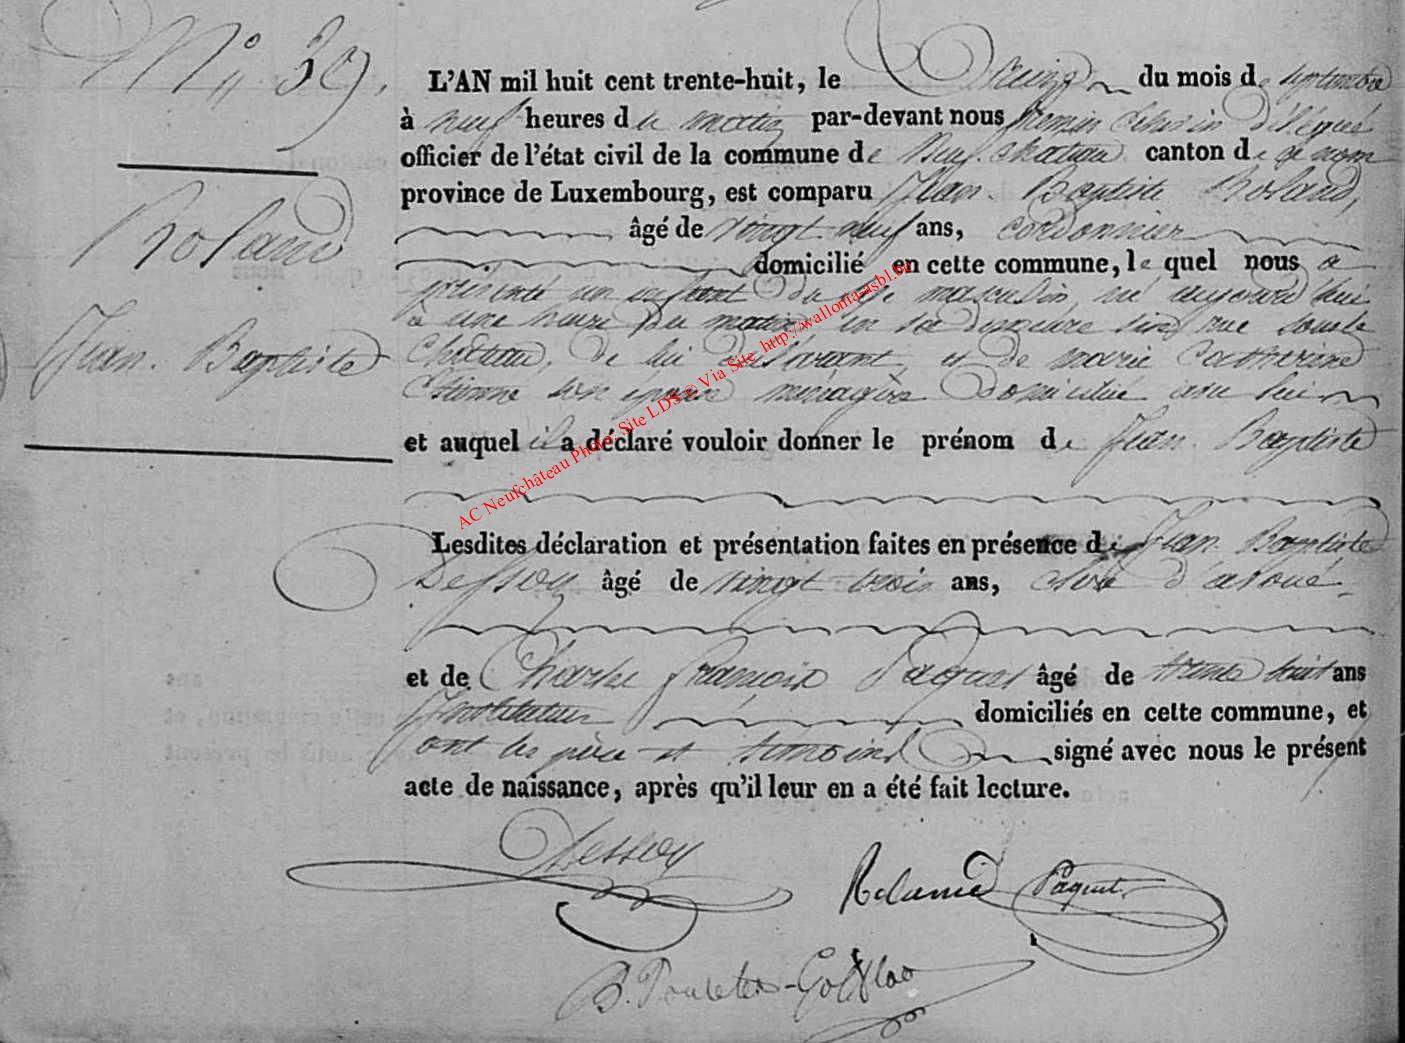 N° 39.
Roland
Jean Baptiste
L'AN mil huit cent trente-huit, le du mois de septembre
à neuf heures du matin par-devant nous premier Echevin délégué
officier de l'état civil de la commune de Neufchateau canton de ce nom
province de Luxembourg, est comparu Jean Baptiste Roland,
âgé de vingt neuf ans, cordonnier
domicilié en cette commune, le quel nous a
présenté un enfant du sexe masculin, né aujourd'hui
à une heure du matin en sa demeure sise rue sous le
Chateau, de lui déclarant, et de marie Catherine
Etienne son épouse menagère domiciliée avec lui
et auquel il a déclaré vouloir donner le prénom de Jean Baptiste
Lesdites déclaration et présentation faites en présence de Jean Baptiste
Dessoy âgé de vingt trois ans, clerc d'avoué
et de Charles François Paquet âgé de trente huit ans
Instituteur domiciliés en cette commune, et
ont les père et témoins signé avec nous le présent
acte de naissance, après qu'il leur en a été fait lecture.
Dessoy
Roland Paquet
AC Neufchâteau Photo. Site LDS © Via Site http://wallonia-asbl.be